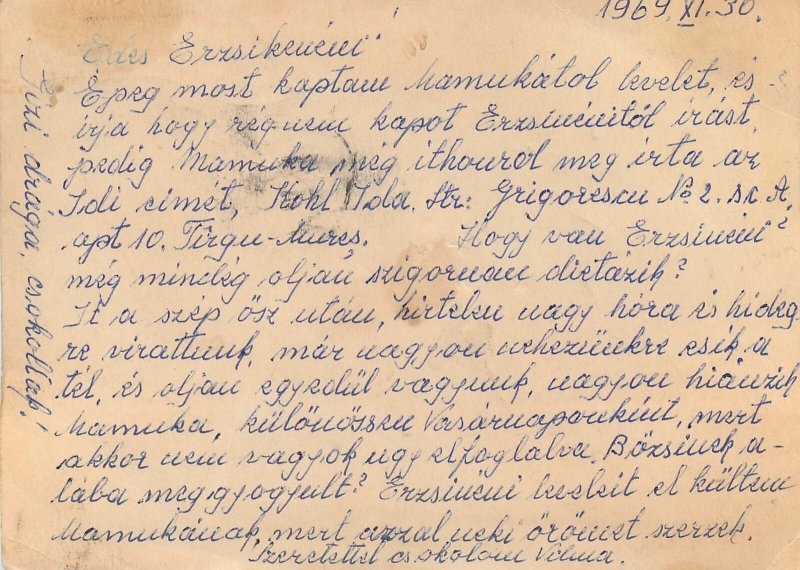 1969. XI. 30.
Édes Erzsikenéni"
Épeg most kaptam Mamukától levelet, és
irja hogy rég nem kapot Erzsinénitól irást,
pedig Mamuka még ithonrol meg irta az
Idi cimét, Kohl Ida. Str: Grigorescu No 2. sc A,
apt 10. Tîrgu-Mureș. Hogy van Erzsinéni?
még mindég oljan szigoruan diétázik?
It a szép ősz után, hirtelen nagy hóra és hideg
re virattunk, már nagyon nehezünkre esik a
tél, és oljan egyedül vagyunk, nagyon hiánzik
Mamuka, különössen Vasárnaponként, mert
akkor nem vagyok ugy elfoglalva. Bözsinek a-
lába meggyogyult? Erzsinéni leveleit el kültem
Mamukának, mert azzal neki örömet szerzek.
Szeretettel csokolom Vilma.
Jozi drága, csokollak!